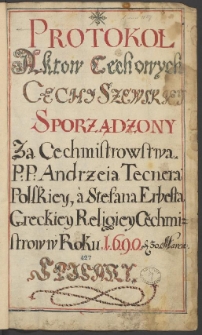 PROTOKOŁ
Aktow Cechowych
CECHY SZEWSKIEY
SPORZĄDZONY
Za Cechmistrowstwa
P.P. Andrzeia Tecnera
Polskiey, á Stefana Erbesta
Greckiey Religiey Cechmi-
strow w Roku 1690 30 Marca
SPISANY